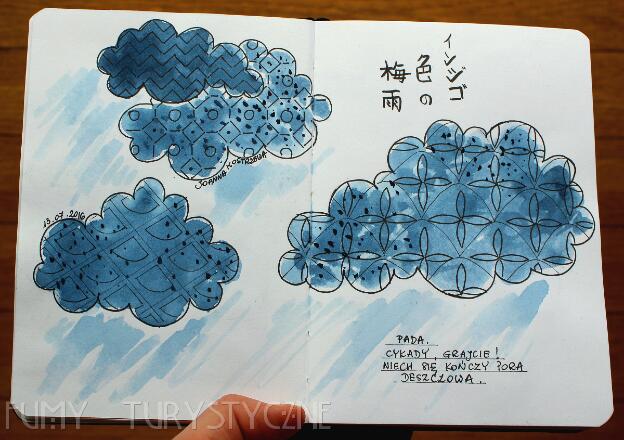 インジゴ
色の
梅雨
JOANNA KOSTRZEWA
13.07.2016
PADA.
CYKADY, GRAJCIE!
NIECH SIĘ KOŃCZY PORA
DESZCZOWA.
FUMY TURYSTYCZNE